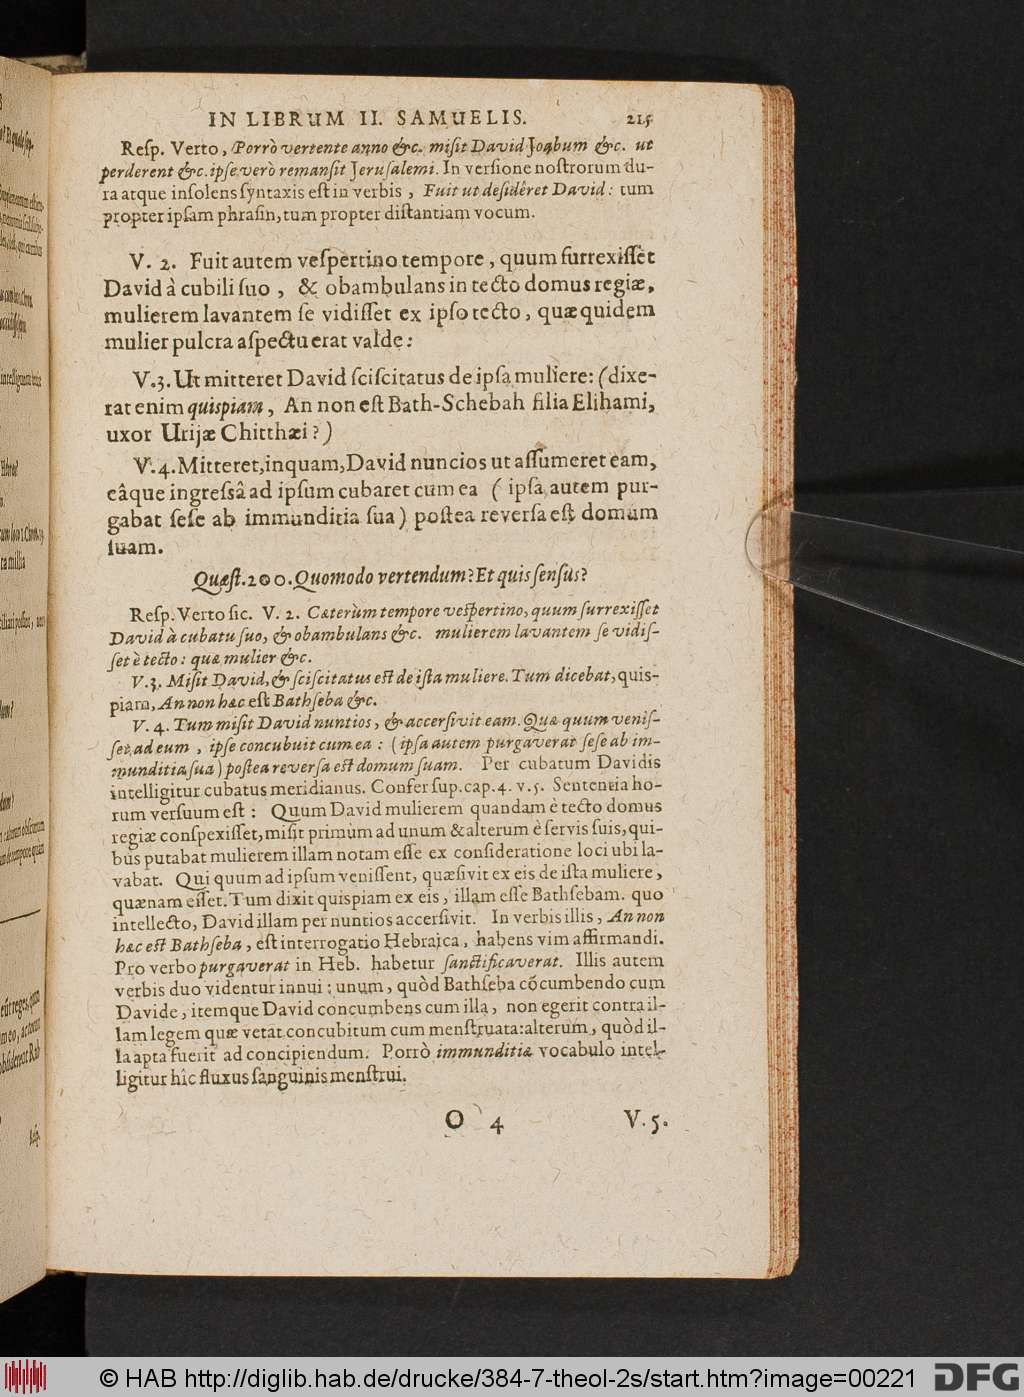 IN LIBRUM II. SAMUELIS. 215
Resp. Verto, Porrò vertente anno &c. misit David Joabum &c. ut
perderent &c. ipse verò remansit Jerusalemi. In versione nostrorum du-
ra atque insolens syntaxis est in verbis, Fuit ut desidêret David: tum
propter ipsam phrasin, tum propter distantiam vocum.
V. 2. Fuit autem vespertino tempore, quum surrexisset
David à cubili suo, & obambulans in tecto domus regiæ,
mulierem lavantem se vidisset ex ipso tecto, quæ quidem
mulier pulcra aspectu erat valde:
V. 3. Ut mitteret David sciscitatus de ipsa muliere: (dixe-
rat enim quispiam, An non est Bath-Schebah filia Elihami,
uxor Urijæ Chitthæi?)
V. 4. Mitteret, inquam, David nuncios ut assumeret eam,
eâque ingressâ ad ipsum cubaret cum ea (ipsa autem pur-
gabat sese ab immunditia sua) postea reversa est domum
suam.
Quæst. 200. Quomodo vertendum? Et quis sensus?
Resp. Verto sic. V. 2. Cæterùm tempore vespertino, quum surrexisset
David à cubatu suo, & obambulans &c. mulierem lavantem se vidis-
set è tecto: quæ mulier &c.
V. 3. Misit David, & sciscitatus est de ista muliere. Tum dicebat, quis-
piam, An non hæc est Bathseba &c.
V. 4. Tum misit David nuntios, & accersivit eam. Quæ quum venis-
set ad eum, ipse concubuit cum ea: (ipsa autem purgaverat sese ab im-
munditia sua) postea reversa est domum suam. Per cubatum Davidis
intelligitur cubatus meridianus. Confer sup. cap. 4. v. 5. Sententia ho-
rum versuum est: Quum David mulierem quandam è tecto domus
regiæ conspexisset, misit primùm ad unum & alterum è servis suis, qui-
bus putabat mulierem illam notam esse ex consideratione loci ubi la-
vabat. Qui quum ad ipsum venissent, quæsivit ex eis de ista muliere,
quænam esset. Tum dixit quispiam ex eis, illam esse Bathsebam. quo
intellecto, David illam per nuntios accersivit. In verbis illis, An non
hæc est Bathseba, est interrogatio Hebraica, habens vim affirmandi.
Pro verbo purgaverat in Heb. habetur sanctificaverat. Illis autem
verbis duo videntur innui: unum, quòd Bathseba cõcumbendo cum
Davide, itemque David concumbens cum illa, non egerit contra il-
lam legem quæ vetat concubitum cum menstruata: alterum, quòd il-
la apta fuerit ad concipiendum. Porrò immunditiæ vocabulo intel-
ligitur hîc fluxus sanguinis menstrui.
O 4 V. 5.
© HAB http://diglib.hab.de/drucke/384-7-theol-2s/start.htm?image=00221 DFG